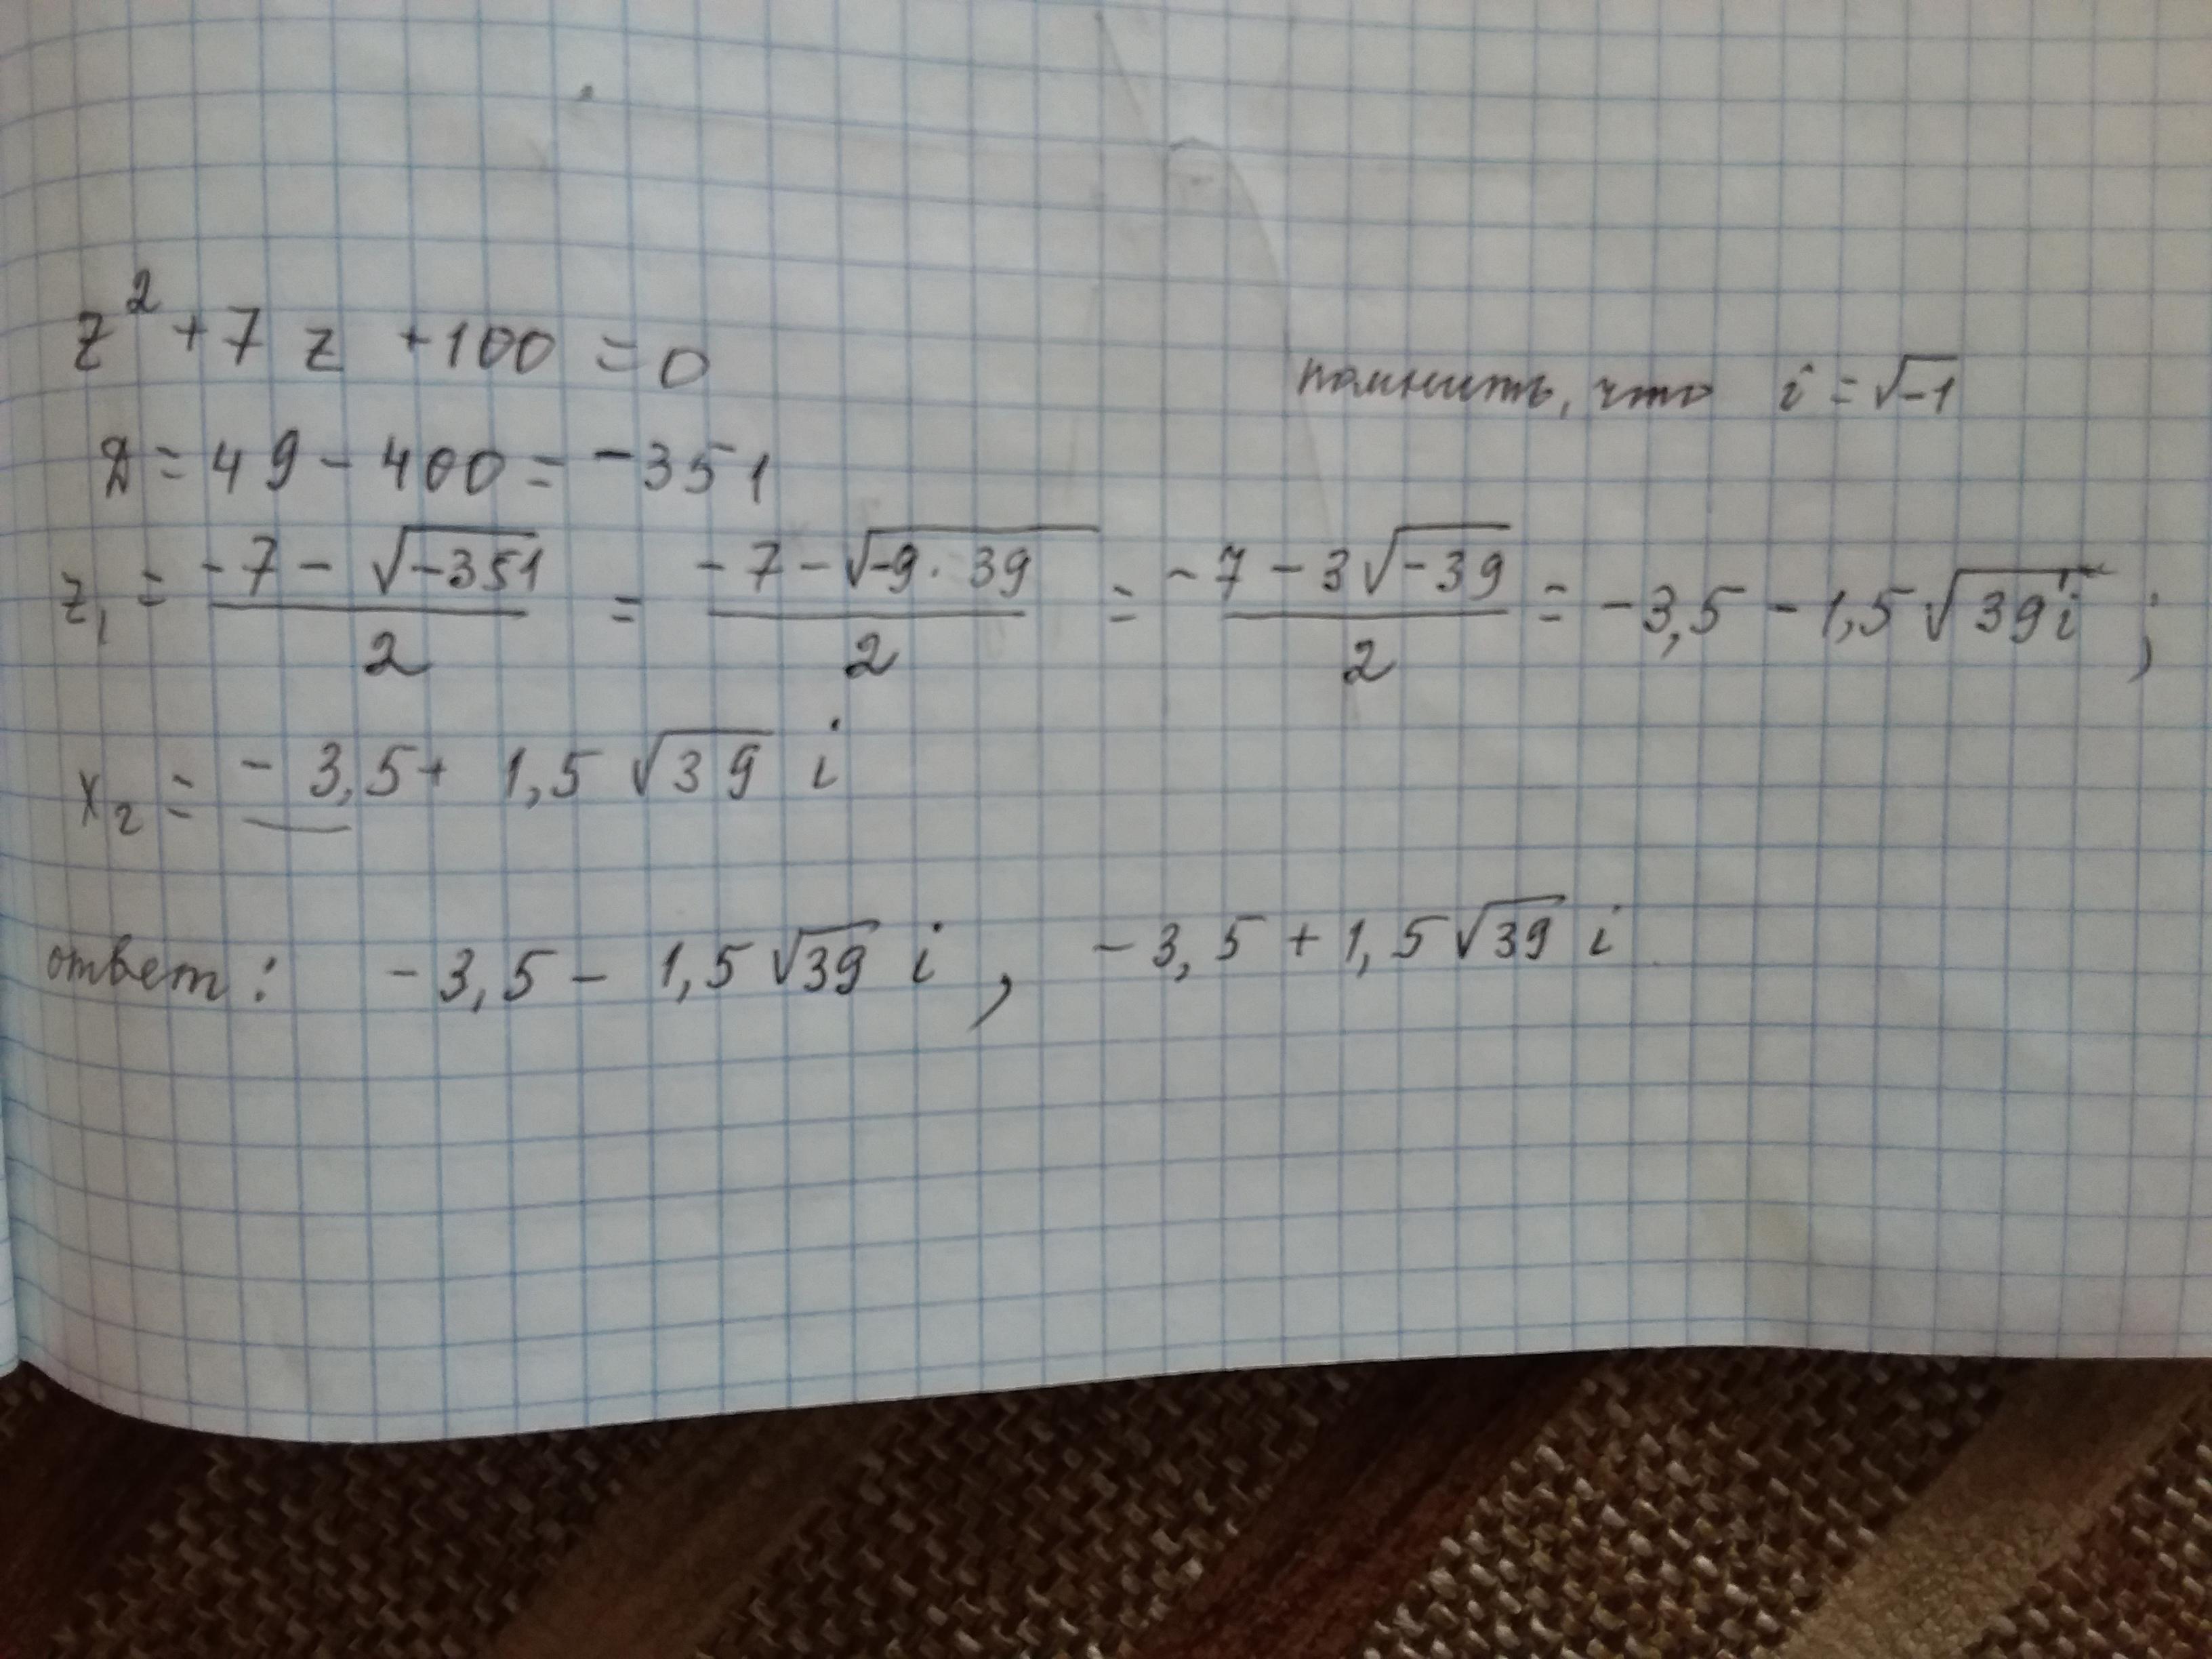 z² + 7 z + 100 = 0
помнить, что i = √-1
Д = 49 - 400 = -351
z₁ = (-7 - √-351)/2 = (-7 - √-9·39)/2 = (-7 - 3√-39)/2 = -3,5 - 1,5 √39i ;
x₂ = - 3,5 + 1,5 √39 i
ответ : - 3,5 - 1,5 √39 i , - 3,5 + 1,5 √39 i